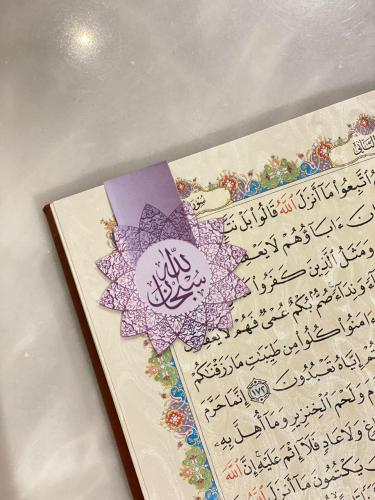 سبحان الله
الثاني
اتَّبِعُوا مَا أَنزَلَ اللَّهُ قَالُوا بَلْ
ءَابَاؤُهُمْ لَا
وَمَثَلُ الَّذِينَ كَفَرُوا
وَنِدَاءً صُمٌّ بُكْمٌ عُمْيٌ فَهُمْ لَا
ءَامَنُوا كُلُوا مِن طَيِّبَٰتِ مَا رَزَقْنَٰكُمْ
إِيَّاهُ تَعْبُدُونَ ١٧٢ إِنَّمَا حَرَّمَ
وَلَحْمَ الْخِنزِيرِ وَمَا أُهِلَّ بِهِ
وَلَا عَادٍ فَلَا إِثْمَ عَلَيْهِ إِنَّ اللَّهَ
يَكْتُمُونَ مَا أَنزَلَ اللَّهُ